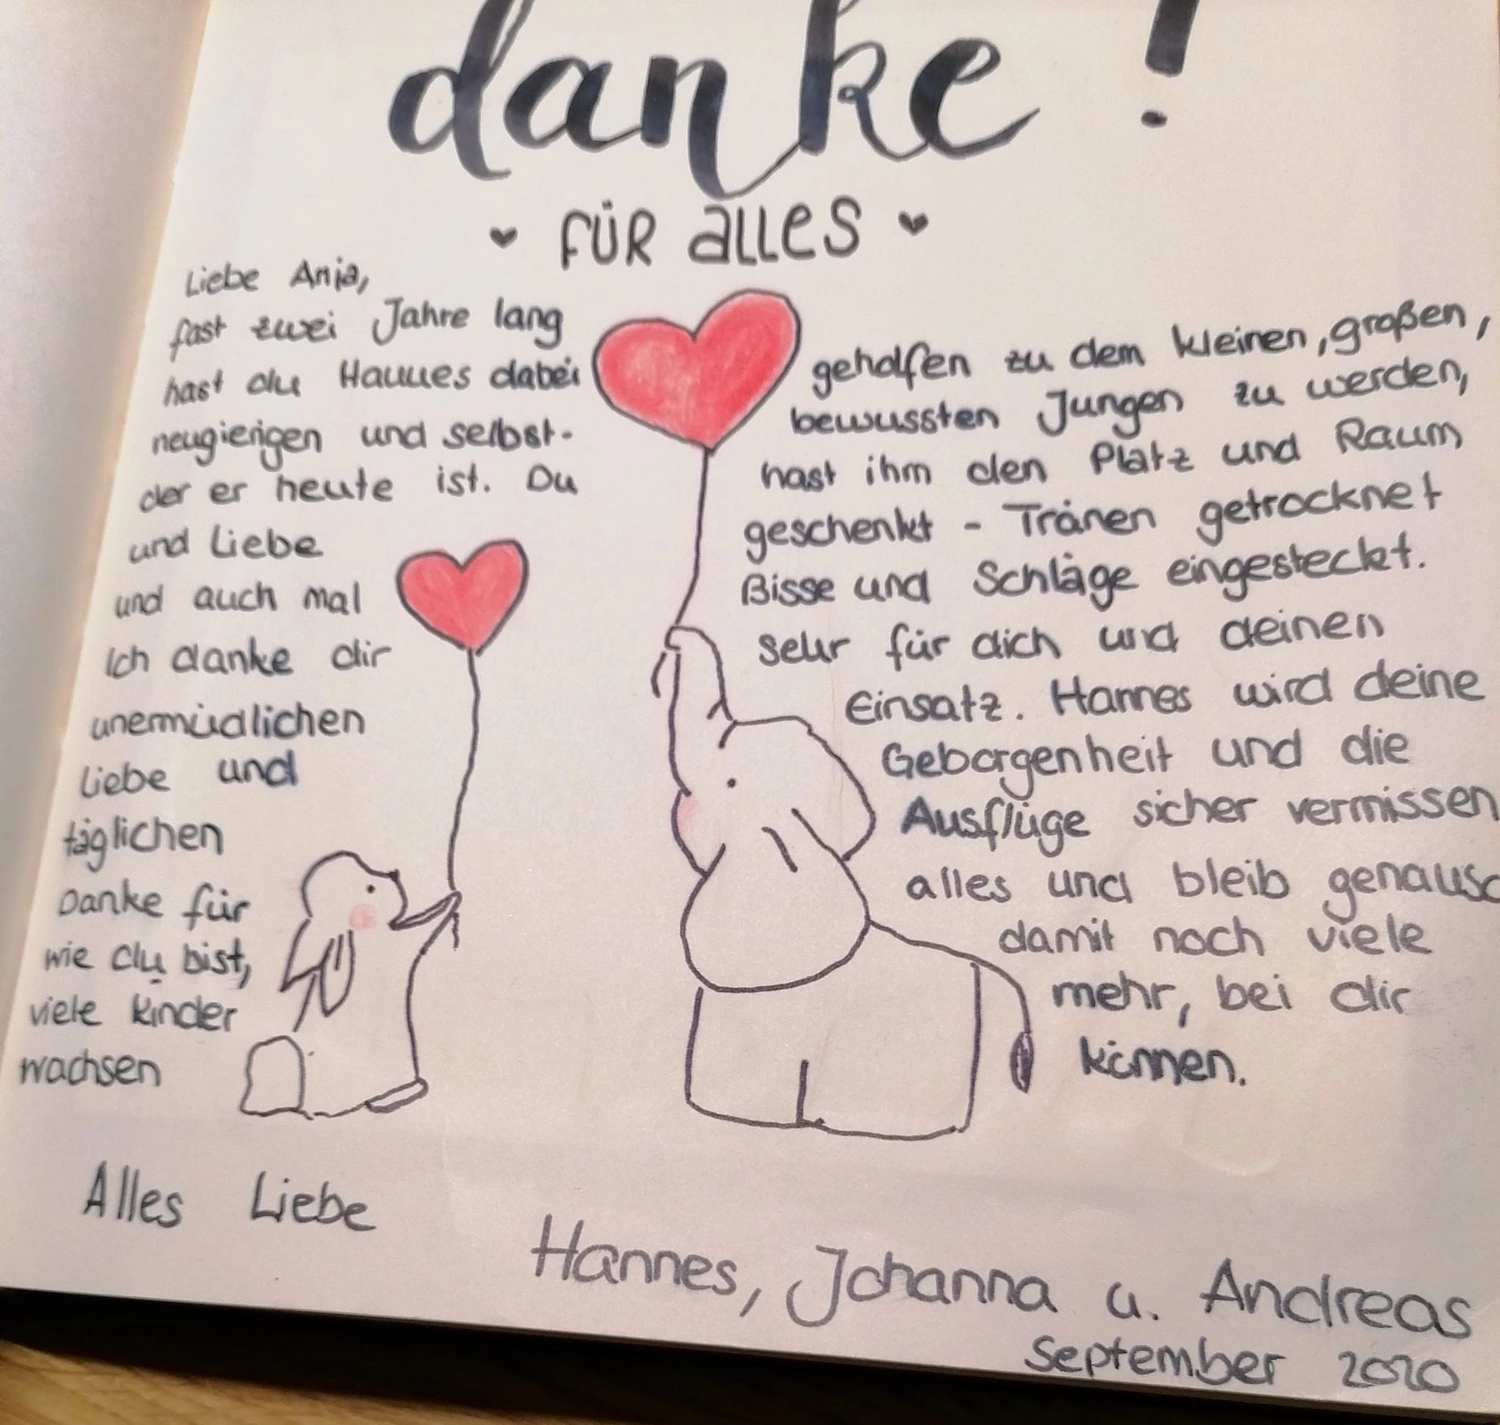 danke!
FÜR alles
Liebe Anja,
fast zwei Jahre lang
hast du Hannes dabei geholfen zu dem kleinen, großen,
neugierigen und selbst- bewussten Jungen zu werden,
der er heute ist. Du hast ihm den Platz und Raum
und Liebe geschenkt - Tränen getrocknet
und auch mal Bisse und Schläge eingesteckt.
Ich danke dir sehr für dich und deinen
unermüdlichen Einsatz. Hannes wird deine
Liebe und Geborgenheit und die
täglichen Ausflüge sicher vermissen
Danke für alles und bleib genauso
wie du bist, damit noch viele
viele Kinder mehr, bei dir
wachsen können.
Alles Liebe
Hannes, Johanna u. Andreas
September 2020